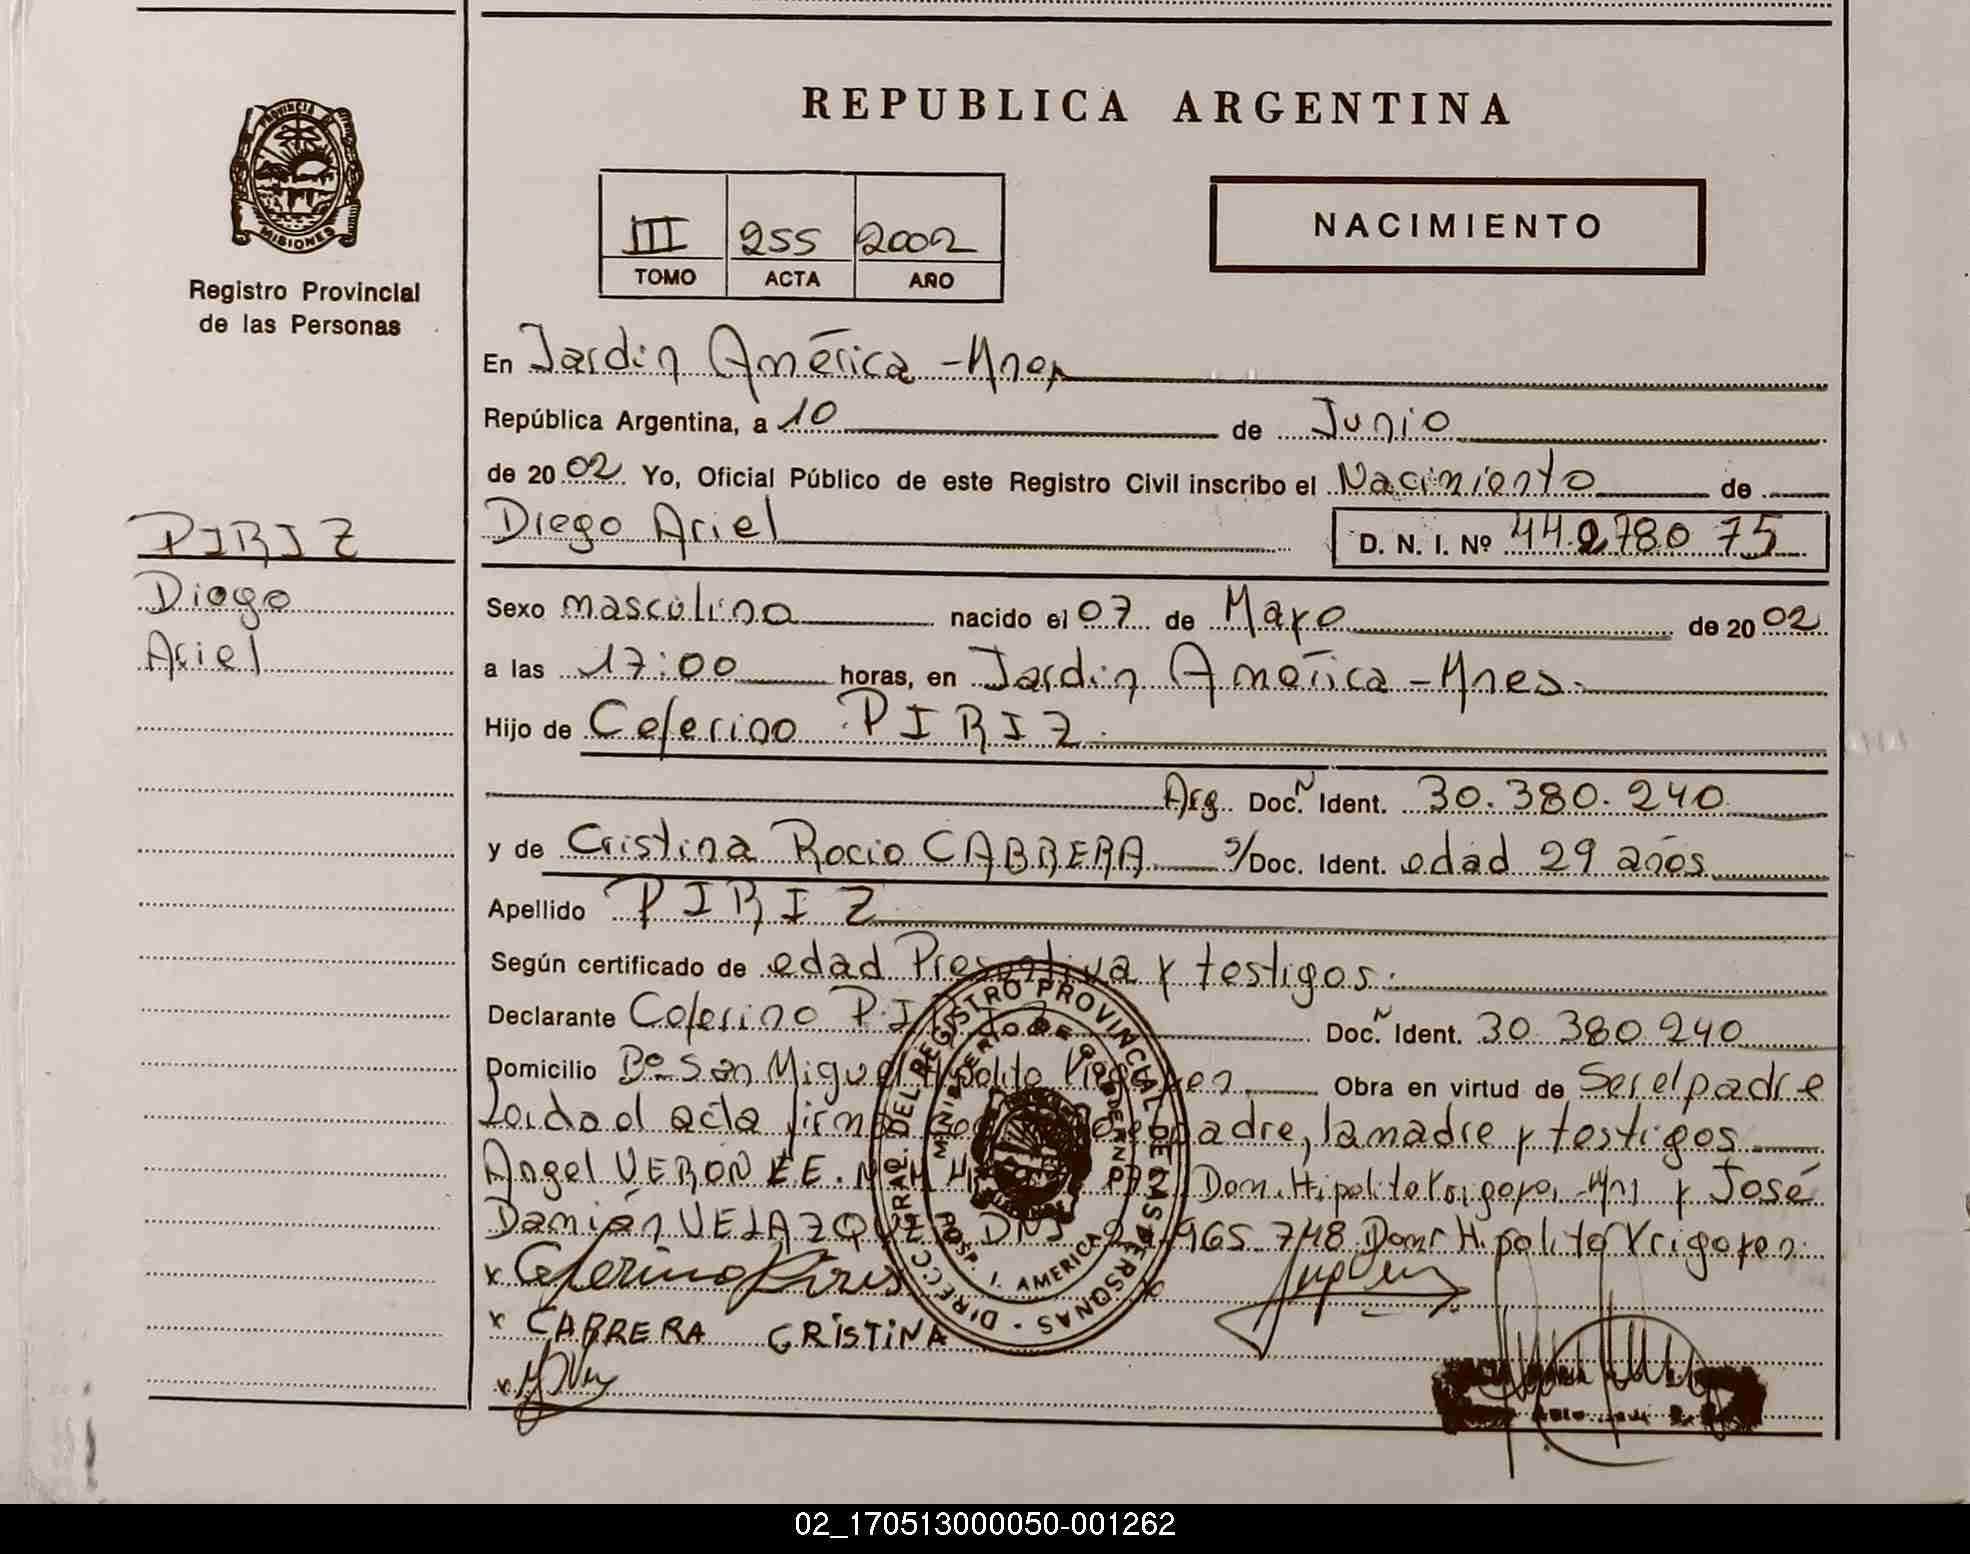 REPUBLICA ARGENTINA
PROVINCIA DE
MISIONES
Registro Provincial
de las Personas
III 255 2002
TOMO ACTA AÑO
NACIMIENTO
En Jardin América - Mnes
República Argentina, a 10 de Junio
de 2002 Yo, Oficial Público de este Registro Civil inscribo el Nacimiento de
Diego Ariel D. N. I. Nº 44.278075
PIRIZ
Diego
Ariel
Sexo masculino nacido el 07 de Mayo de 2002
a las 17:00 horas, en Jardin América - Mnes.
Hijo de Ceferino PIRIZ.
Arg. Doc. N Ident. 30.380.240
y de Cristina Rocio CABRERA s/Doc. Ident. edad 29 años
Apellido PIRIZ
Según certificado de edad Presuntiva y testigos.
Declarante Ceferino PIRIZ Doc. N Ident. 30.380.240
Domicilio Bº San Miguel Hipolito Yrigoyen Obra en virtud de Ser el padre
Leida el acta firman el padre, la madre y testigos
Angel VERON E.E. Dom. Hipolito Yrigoyen - Mns y José
Damián VELAZQUEZ DNI 965.748 Dom Hipolito Yrigoyen.
x Ceferino Piris
x CABRERA CRISTINA
x
DIRECC. GRAL. DEL REGISTRO PROVINCIAL DE LAS PERSONAS
MINISTERIO DE GOBIERNO
HOSP. J. AMERICA
02_170513000050-001262